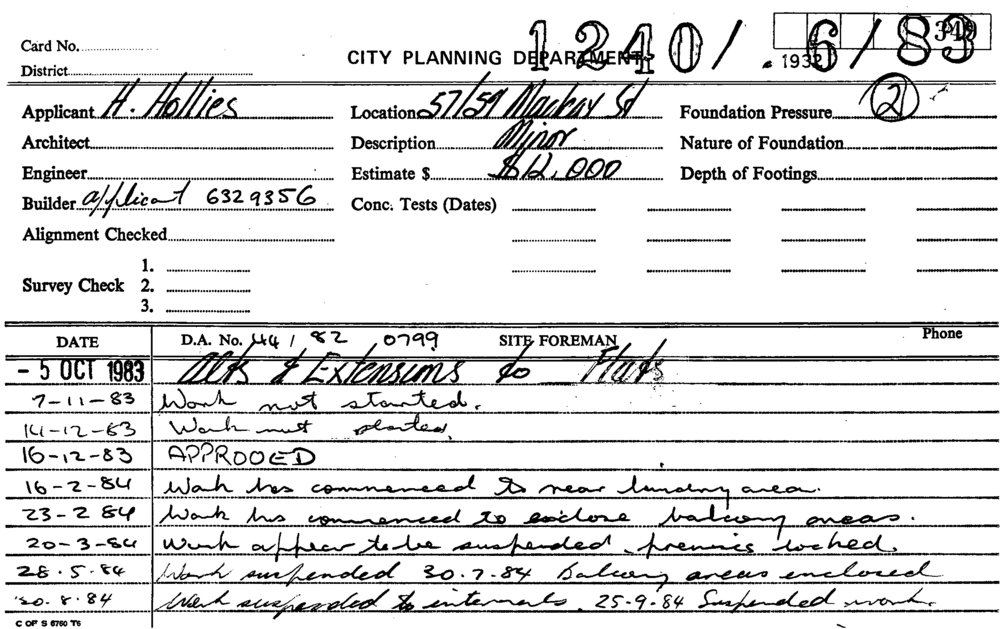 1240/6/83
Card No. CITY PLANNING DEPARTMENT
District
Applicant H. Hollies Location 57/59 Mackay St Foundation Pressure (2)
Architect Description Minor Nature of Foundation
Engineer Estimate $ $12,000 Depth of Footings
Builder applicant 6329356 Conc. Tests (Dates)
Alignment Checked
1.
Survey Check 2.
3.
DATE D.A. No. 44/82 0799 SITE FOREMAN Phone
- 5 OCT 1983 Alts & Extensions to Flats
7-11-83 Work not started.
14-12-83 Work not started.
16-12-83 APPROOED
16-2-84 Work has commenceed to rear laundry area.
23-2 84 Work has commenced to enclose balcony areas.
20-3-84 Work appear to be suspended, premises locked.
28.5.84 Work suspended 30.7.84 Balcony areas enclosed
30.8.84 Work suspended to internals. 25-9-84 Suspended work.
C OF S 6760 T6